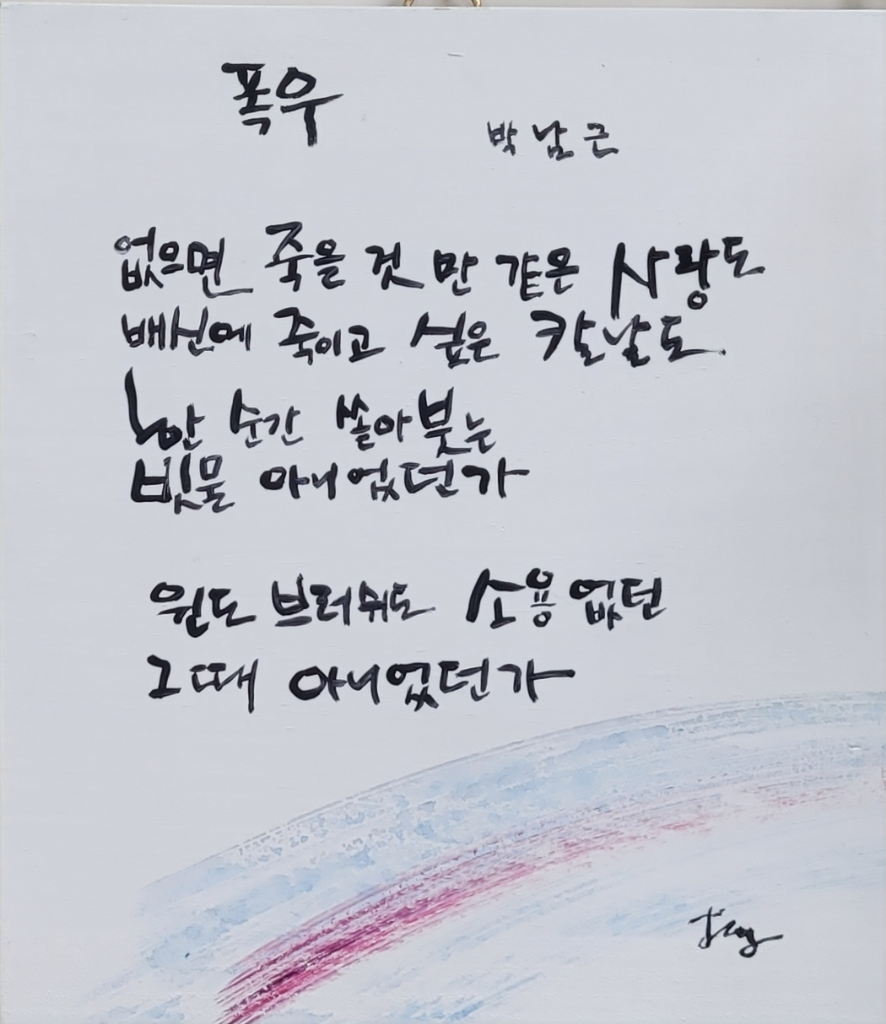 폭우
박남근
없으면 죽을 것 만 같은 사랑도
배신에 죽이고 싶은 칼날도
한 순간 쏟아붓는
빗물 아니었던가
윈도 브러쉬도 소용없던
그때 아니었던가